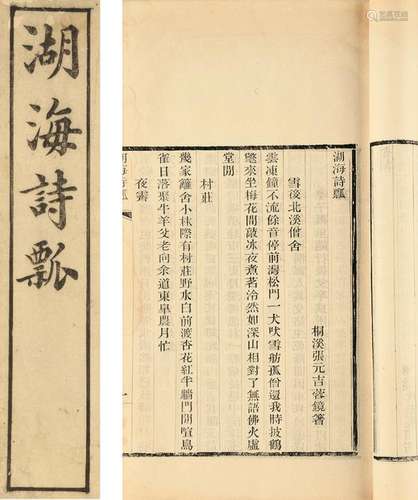 湖海詩瓢
湖海詩瓢
桐溪張元吉蓉鏡著
雪後北溪僧舍
雲凍鐘不流餘音停前灣松門一犬吠雪舫孤僧還我時披鶴
氅來坐梅花間敲冰夜煮茗泠然如深山相對了無語佛火虛
堂閒
村莊
幾家籬舍小林際有村莊野水白前渡杏花紅半牆門閒喧鳥
雀日落聚牛羊父老向余道東皐農月忙
夜霽
湖海詩瓢
一